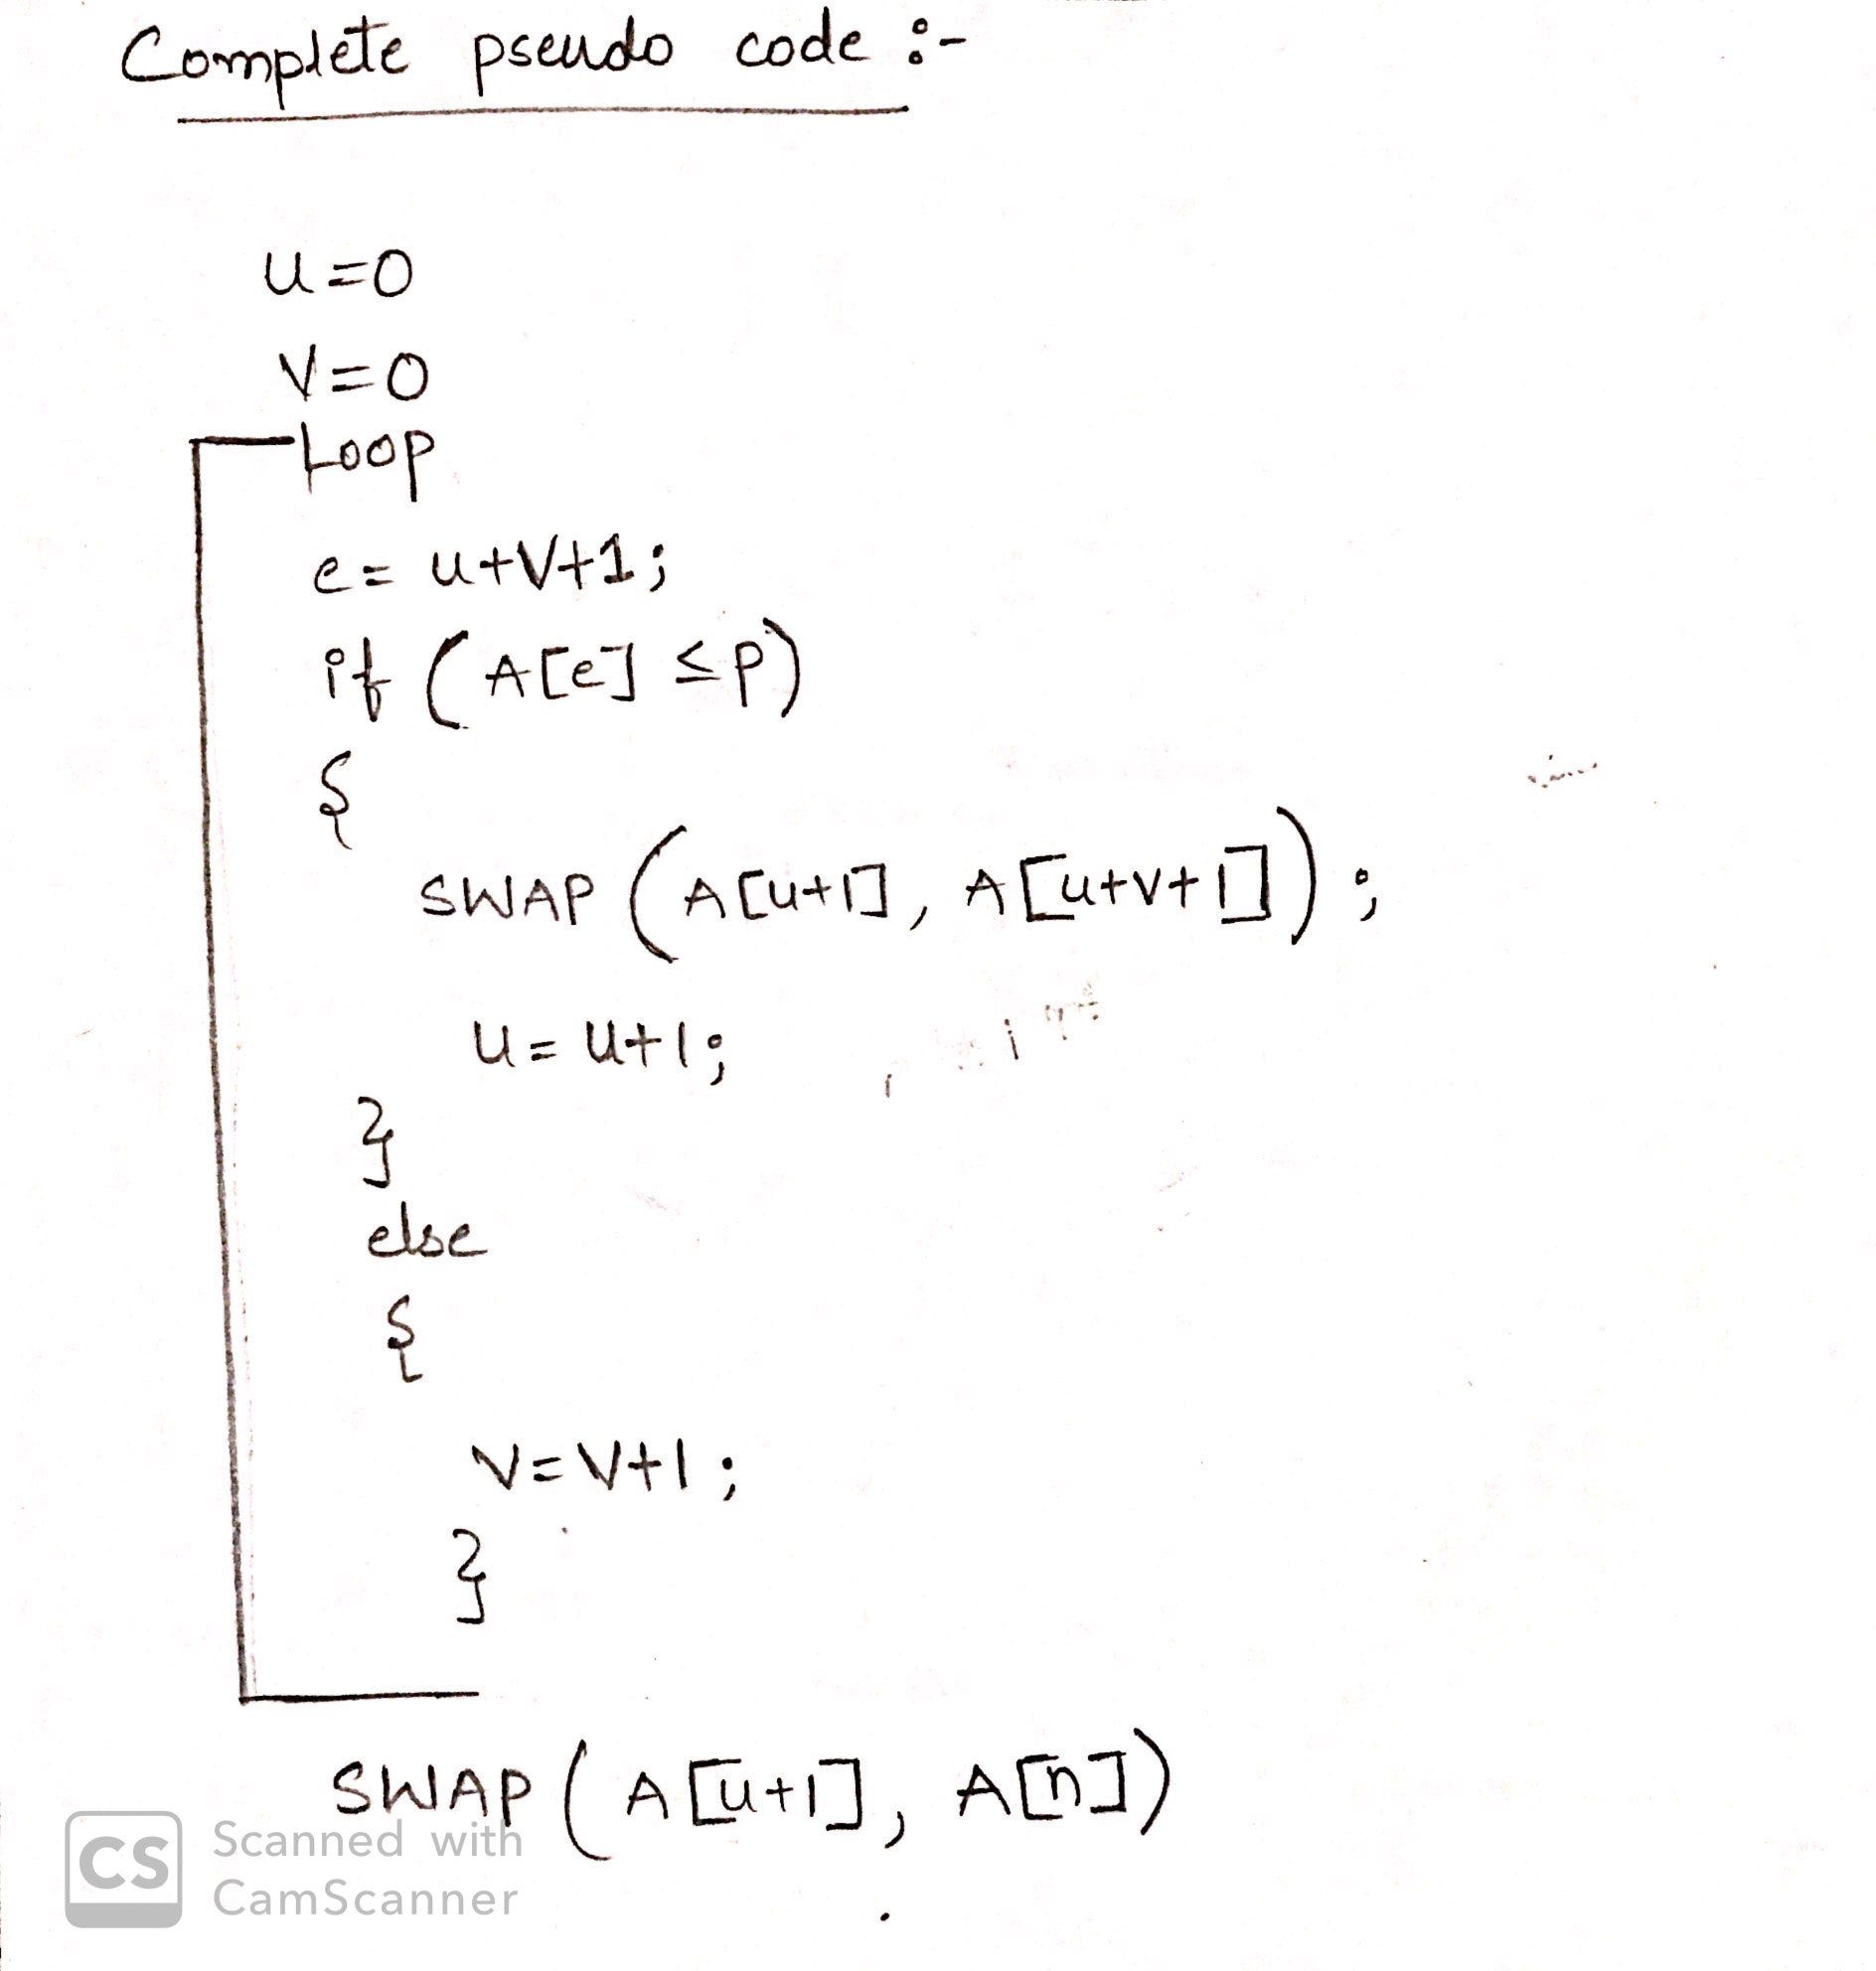 Complete pseudo code :-
u=0
v=0
Loop
e= u+v+1;
if (A[e] ≤ p)
{
SWAP (A[u+1], A[u+v+1]);
u= u+1;
}
else
{
v= v+1;
}
SWAP (A[u+1], A[n])
CS Scanned with
CamScanner